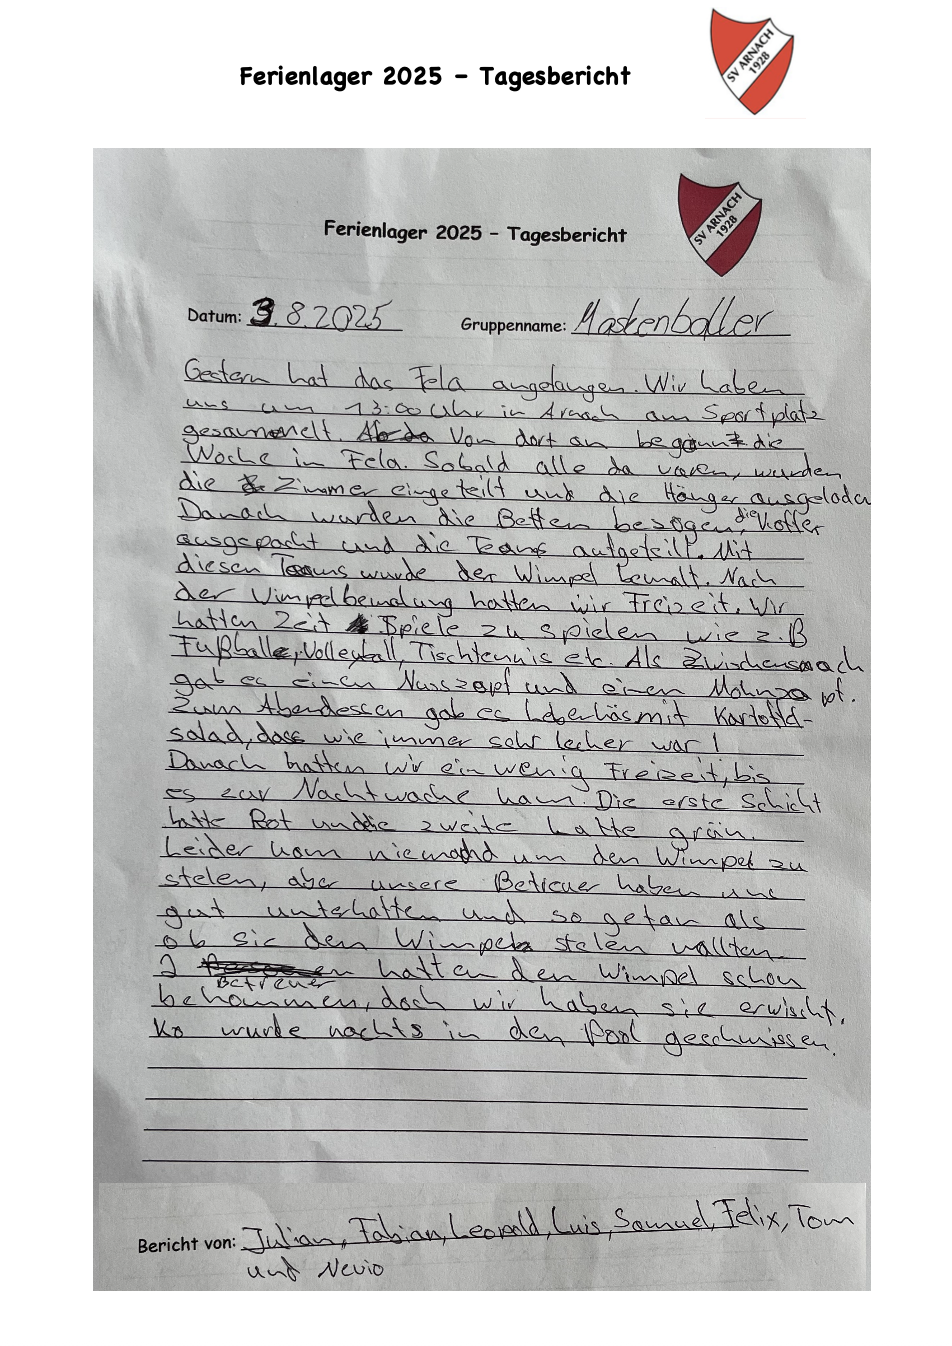 Ferienlager 2025 – Tagesbericht
SV ARNACH
1928
Ferienlager 2025 – Tagesbericht
SV ARNACH
1928
Datum: 3.8.2025 Gruppenname: Maskenballer
Gestern hat das Fela angefangen. Wir haben
uns um 13:00 Uhr in Arnach am Sportplatz
gesammelt. Von dort an begann die
Woche in Fela. Sobald alle da waren, wurden
die Zimmer eingeteilt und die Hänger ausgeladen
Danach wurden die Betten bezogen, die Koffer
ausgepackt und die Teams aufgeteilt. Mit
diesen Teams wurde der Wimpel bemalt. Nach
der Wimpelbemalung hatten wir Freizeit. Wir
hatten Zeit Spiele zu spielen wie z.B
Fußball, Volleyball, Tischtennis etc. Als Zwischensnach
gab es einen Nusszopf und einen Mohnzopf.
Zum Abendessen gab es Leberkäs mit Kartoffel-
salad, dass wie immer sehr lecker war!
Danach hatten wir ein wenig Freizeit, bis
es zur Nachtwache kam. Die erste Schicht
hatte Rot und die zweite hatte grün.
Leider kam niemand um den Wimpel zu
stelen, aber unsere Betreuer haben uns
gut unterhalten und so getan als
ob sie den Wimpel stelen wollten.
2 Betreuer hatten den Wimpel schon
bekommen, doch wir haben sie erwischt.
Ko wurde nachts in den Pool geschmissen.
Bericht von: Julian, Fabian, Leopold, Luis, Samuel, Felix, Tom
und Nevio